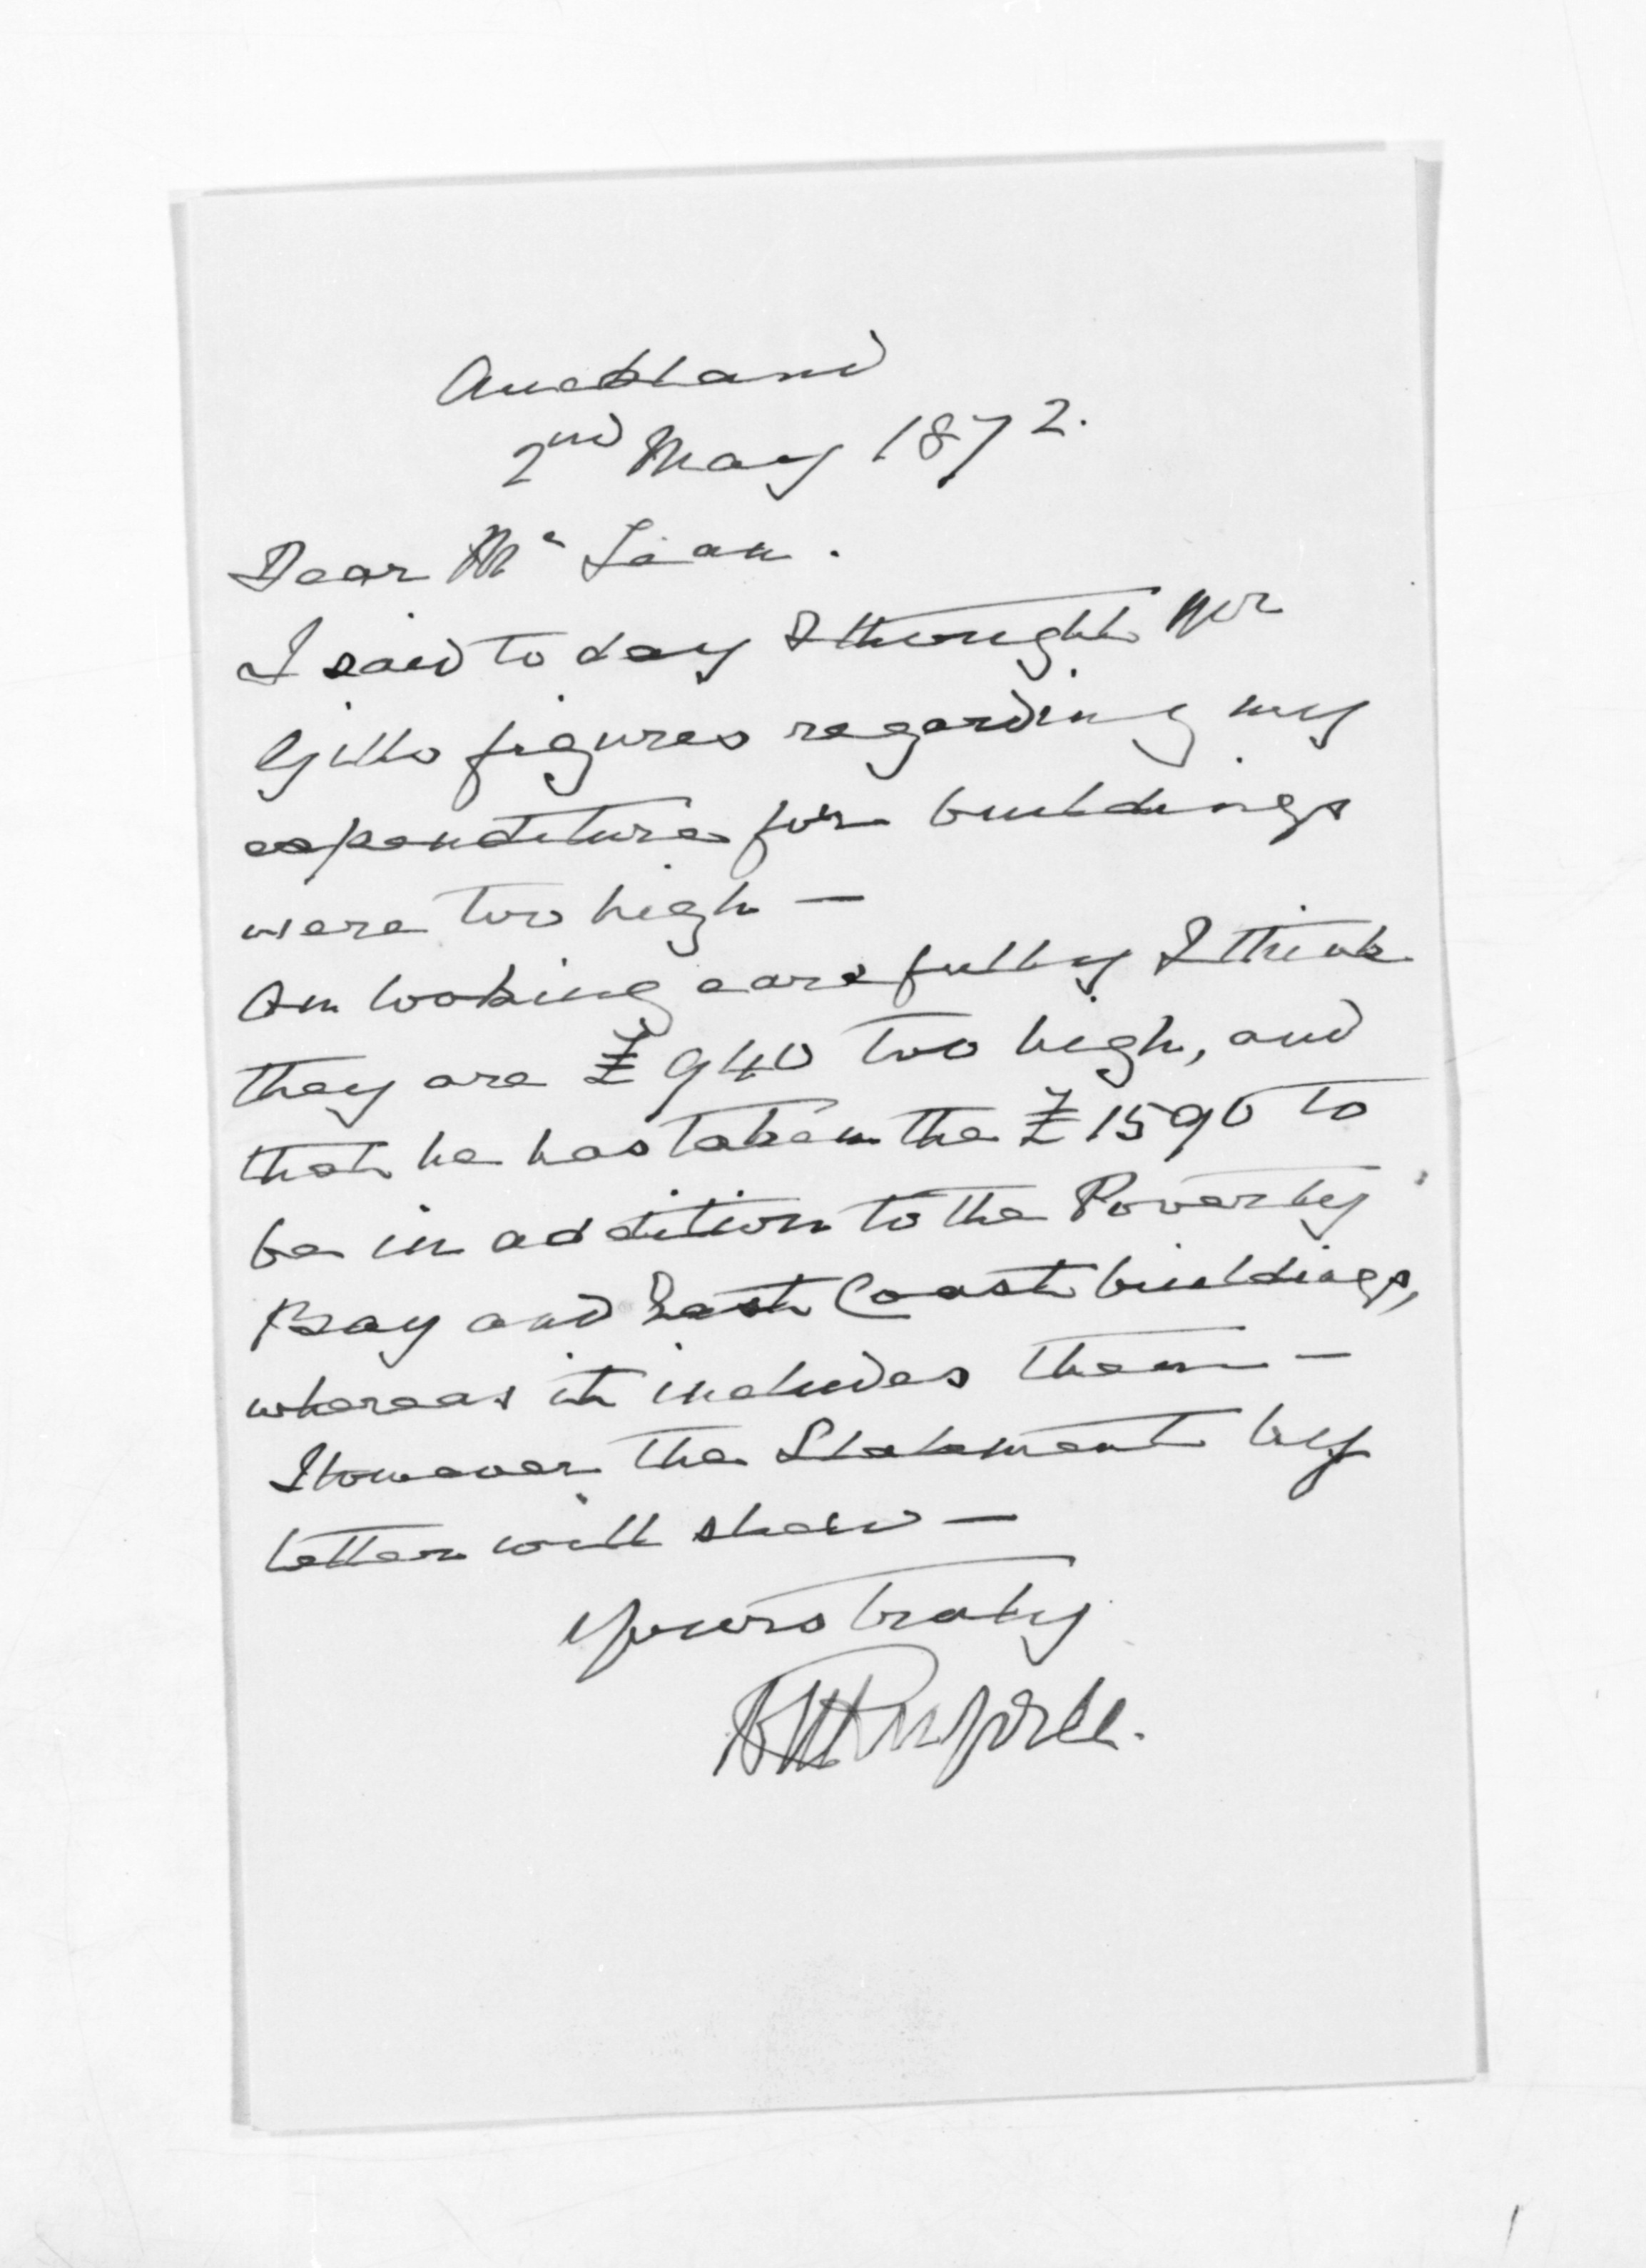 Auckland
2nd May 1872.
Dear Mc Lean.
I said to day I thought Mr
Gills figures regarding my
expenditure for buildings
were too high —
On looking carefully I think
they are £940 too high, and
that he has taken the £1590 to
be in addition to the Poverty
Bay and East Coast buildings,
whereas it includes them —
However the Statement by
letter will shew —
Yours truly